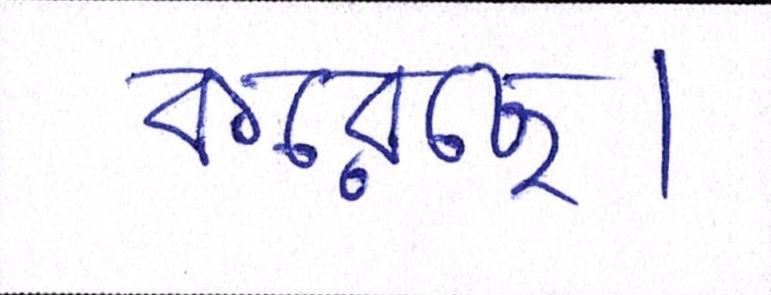 করেছে।